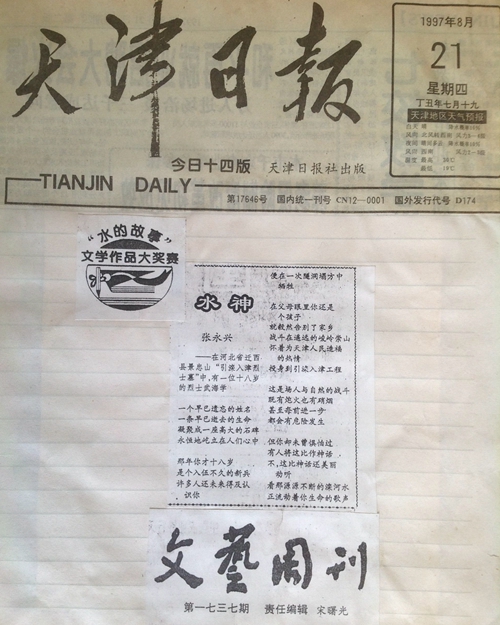 天津日报
1997年8月
21
星期四
丁丑年七月十九
天津地区天气预报
今日十四版 天津日报社出版
TIANJIN DAILY
第17646号 国内统一刊号 CN12—0001 国外发行代号 D174
“水的故事”
文学作品大奖赛
水神
张永兴
——在河北省迁西
县景忠山“引滦入津烈
士墓”中,有一位十八岁
的烈士武海学
一个早已遗忘的姓名
一条早已逝去的生命
凝聚成一座高大的石碑
永恒地屹立在人们心中
那年你才十八岁
是个入伍不久的新兵
许多人还未来得及认
识你
便在一次隧洞塌方中
牺牲
在父母眼里你还是
个孩子
就毅然告别了家乡
战斗在遥远的崚岭崇山
怀着为天津人民造福
的热情
投身到引滦入津工程
这是场人与自然的战斗
既有炮火也有硝烟
甚至每前进一步
都会有危险发生
但你却未曾惧怕过
有人将这比作神话
不,这比神话还美丽
动听
看那源源不断的滦河水
正流动着你生命的歌声
文藝周刊
第一七三七期 责任编辑 宋曙光